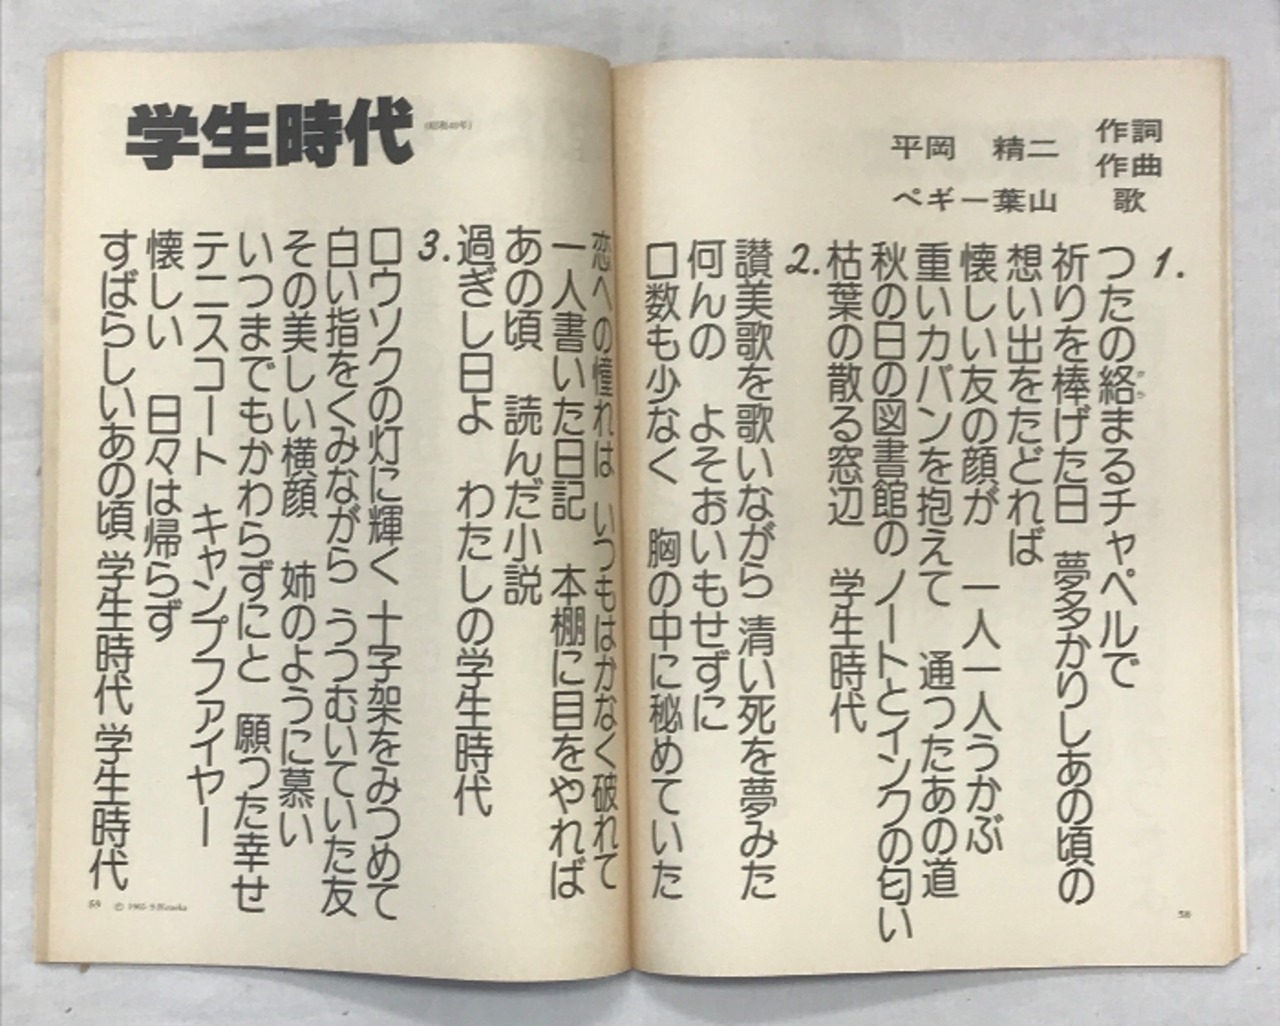 学生時代
(昭和40年)
作詞
作曲
平岡 精二
歌
ペギー葉山
1.
つたの絡まるチャペルで
から
祈りを棒げた日 夢多かりしあの頃の
想い出をたどれば
懐しい友の顔が 一人一人うかぶ
重いカバンを抱えて 通ったあの道
秋の日の図書館の ノートとインクの匂い
枯葉の散る窓辺 学生時代
2.
讃美歌を歌いながら 清い死を夢みた
何んの よそおいもせずに
口数も少なく 胸の中に秘めていた
58
恋への憧れは いつもはかなく破れて
一人書いた日記 本棚に目をやれば
あの頃 読んだ小説
過ぎし日よ わたしの学生時代
3.
ロウソクの灯に輝く 十字架をみつめて
白い指をくみながら うつむいていた友
その美しい横顔 姉のように慕い
いつまでもかわらずにと 願った幸せ
テニスコート キャンプファイヤー
懐しい 日々は帰らず
すばらしいあの頃 学生時代 学生時代
59 © 1965